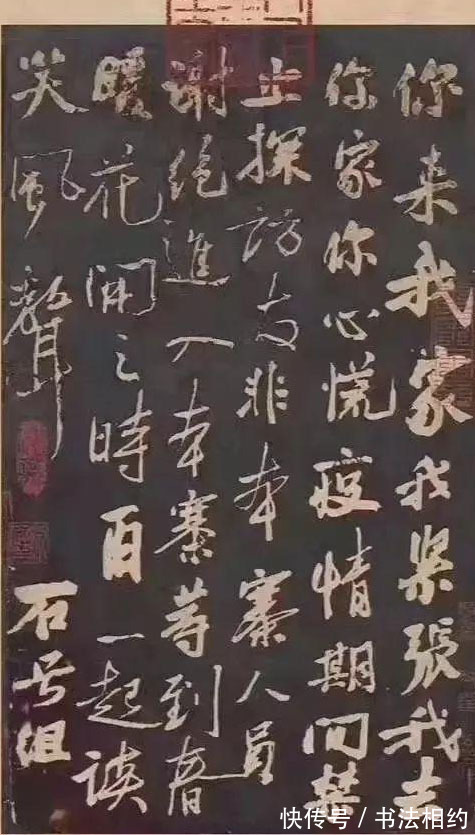 你来我家我紧張我去
你家你心慌疫情期间禁
止探訪友非本寨人員
谢绝進入本寨等到春
暖花開之時再一起談
笑風聲
石号组
快传号 / 书法相约